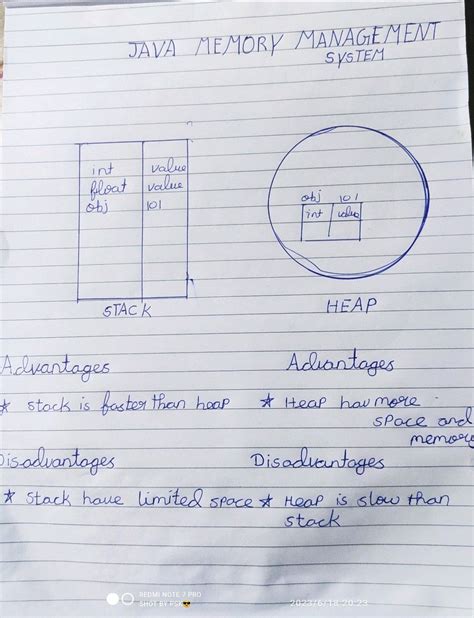 JAVA MEMORY MANAGEMENT
SYSTEM
int value
float value
obj 101
STACK
obj 101
int value
HEAP
Advantages
* Stack is faster than heap
Disadvantages
* Stack have limited space
Advantages
* Heap hav more
space and
memory
Disadvantages
* Heap is slow than
stack
REDMI NOTE 7 PRO
SHOT BY RSK😎
2023/6/18 20:23